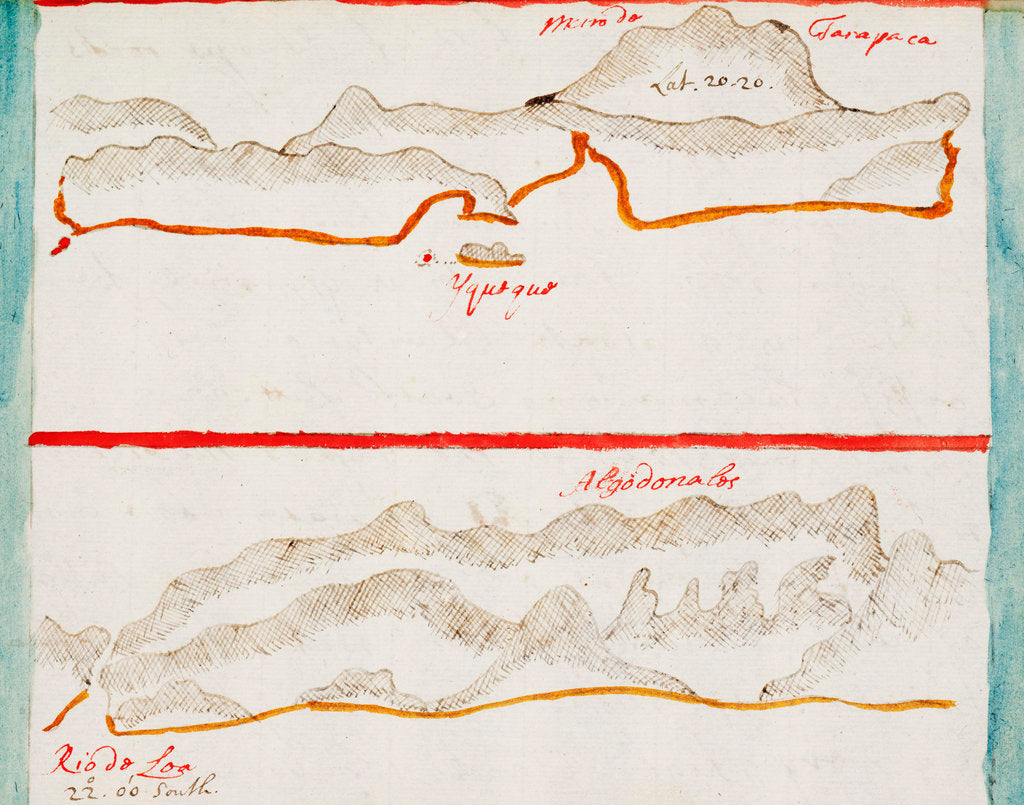 Morro de Tarapaca
Lat. 20-20.
Yqueque
Algodonales
Rio de Loa
22°. 00 South.